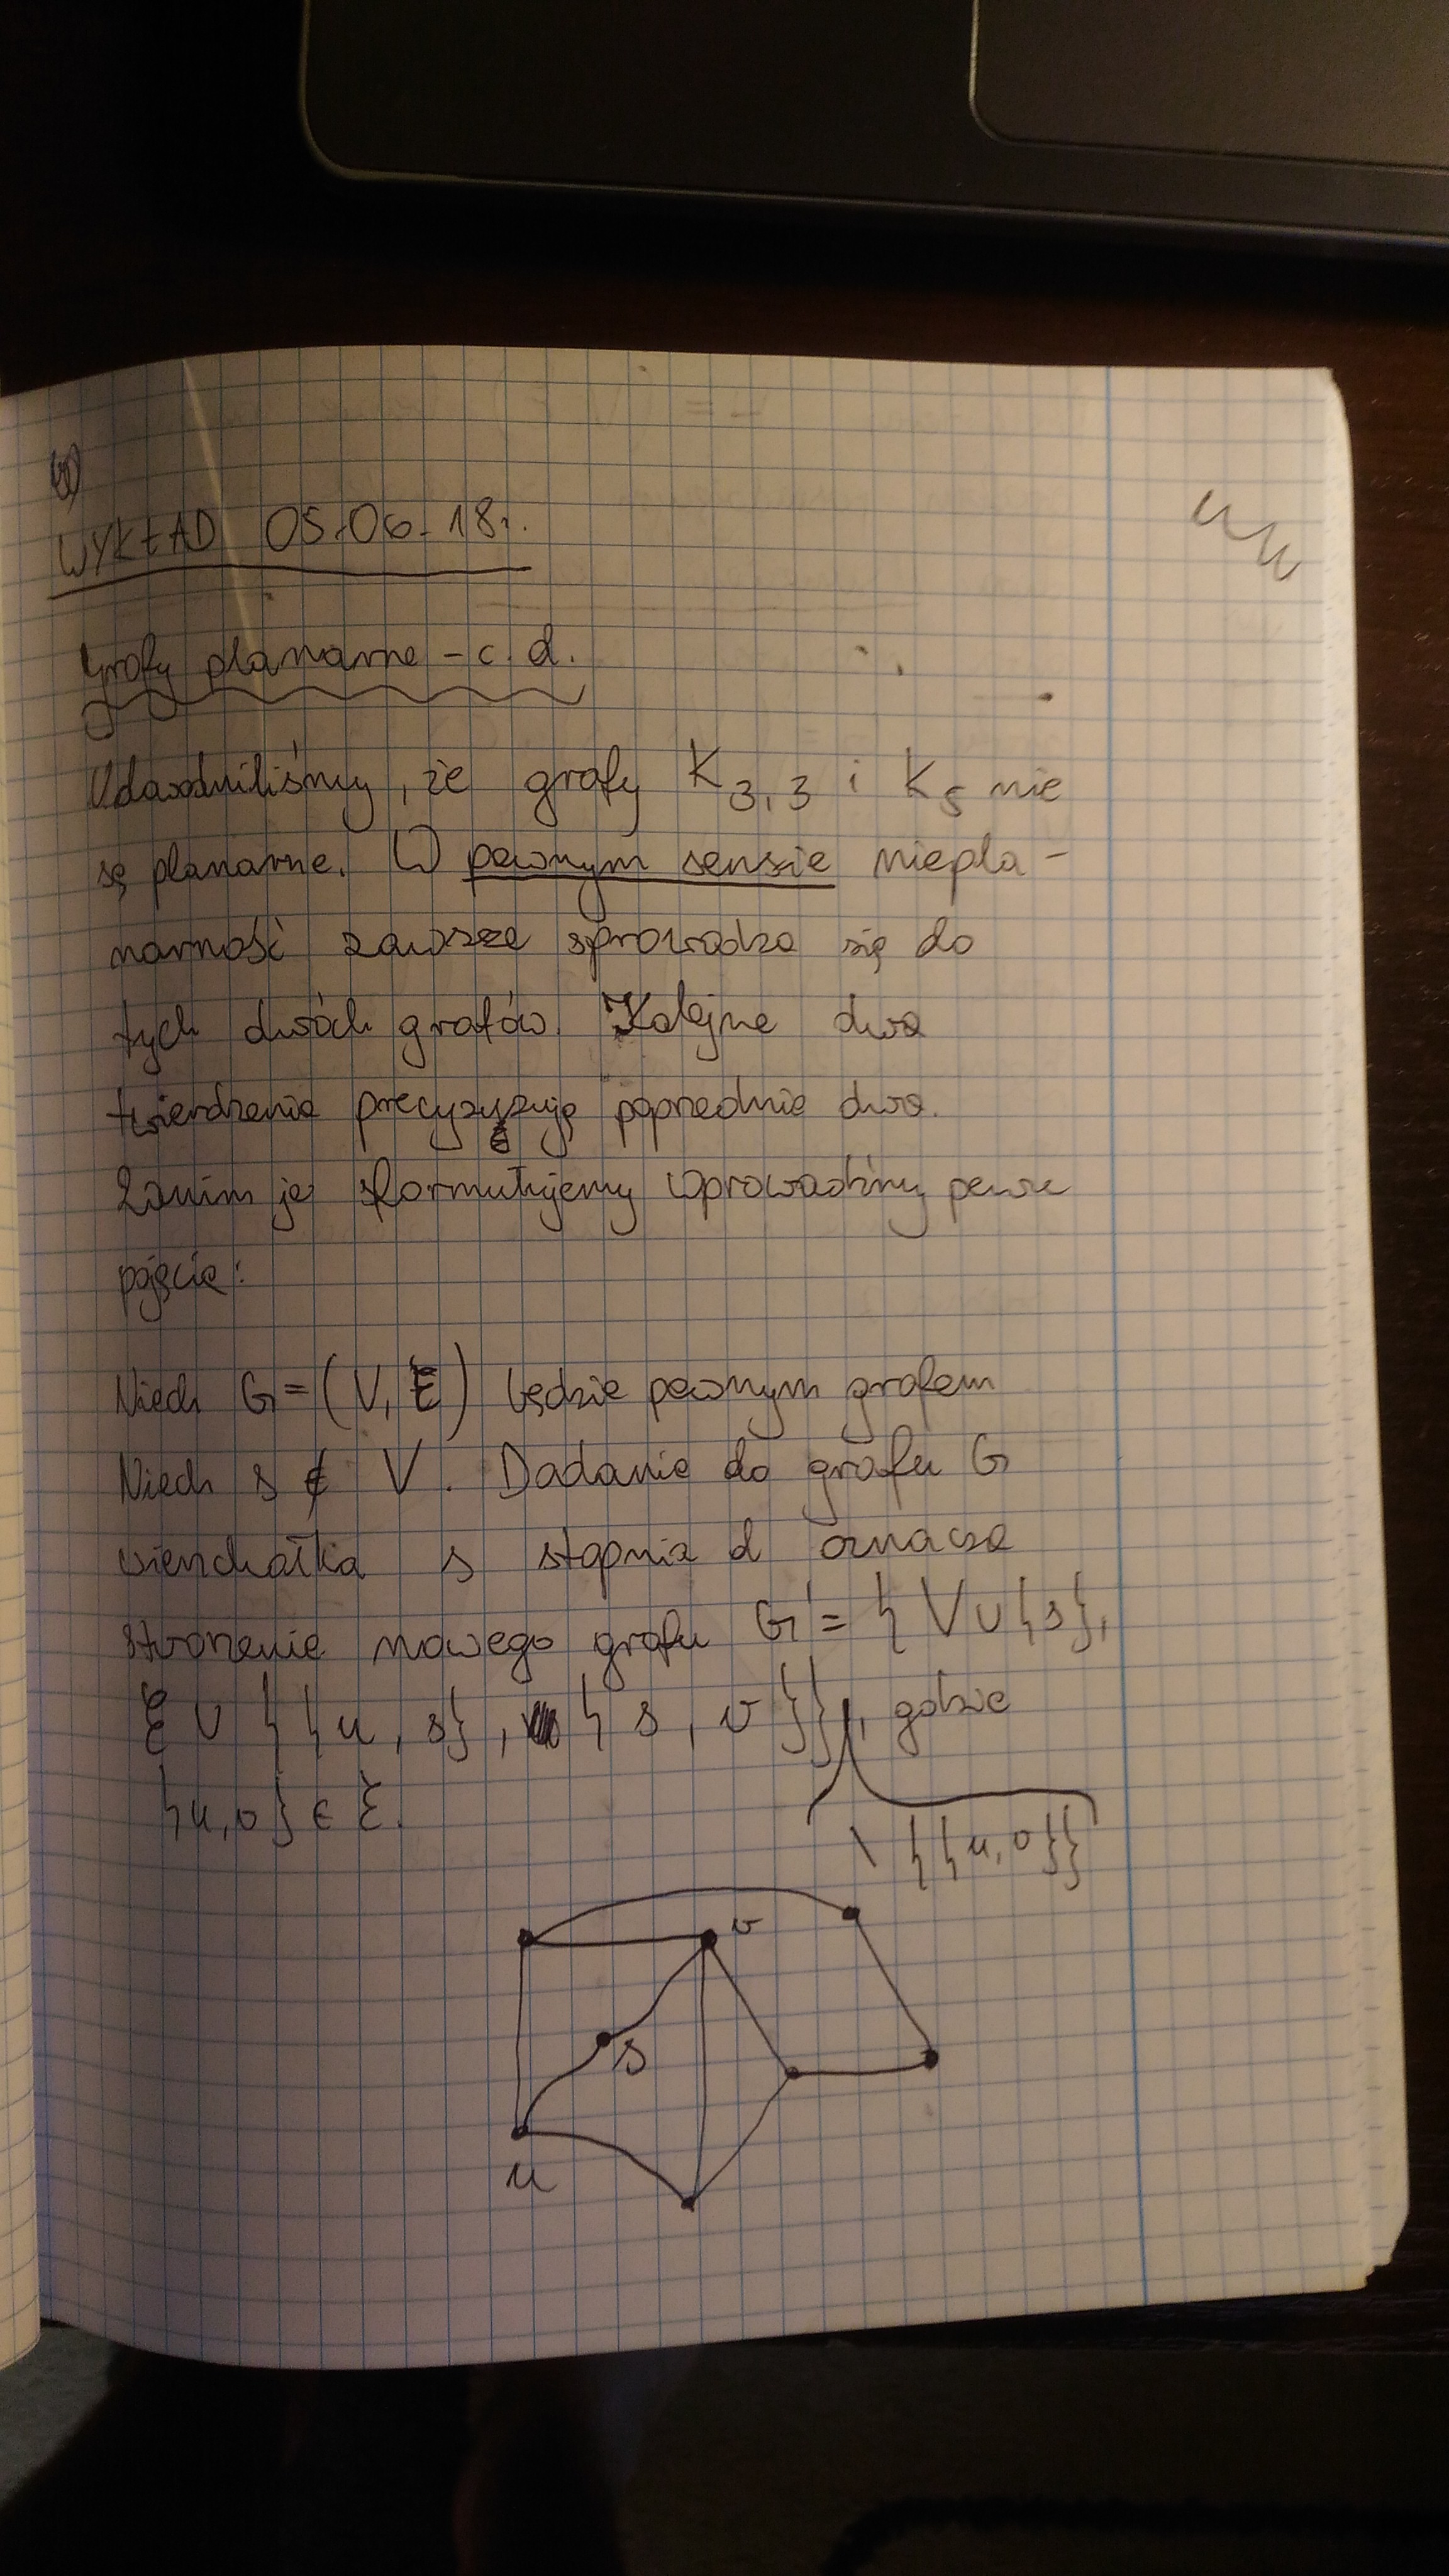 WYKŁAD 05.06.18r.
Grafy planarne - c.d.
Udowodniliśmy, że grafy K3,3 i K5 nie
są planarne. W pewnym sensie niepla-
narność zawsze sprowadza się do
tych dwóch grafów. Kolejne dwa
twierdzenia precyzyzują poprzednie dwa.
Zanim je sformułujemy wprowadźmy pewne
pojęcie:
Niech G = (V, E) będzie pewnym grafem
Niech s ∉ V. Dodanie do grafu G
wierzchołka s stopnia d oznacza
stworzenie nowego grafu G' = { V∪{s},
E ∪ {{u, s}, {s, v}}, gdzie
\ {{u,v}}
{u,v} ∈ E.
v
s
u